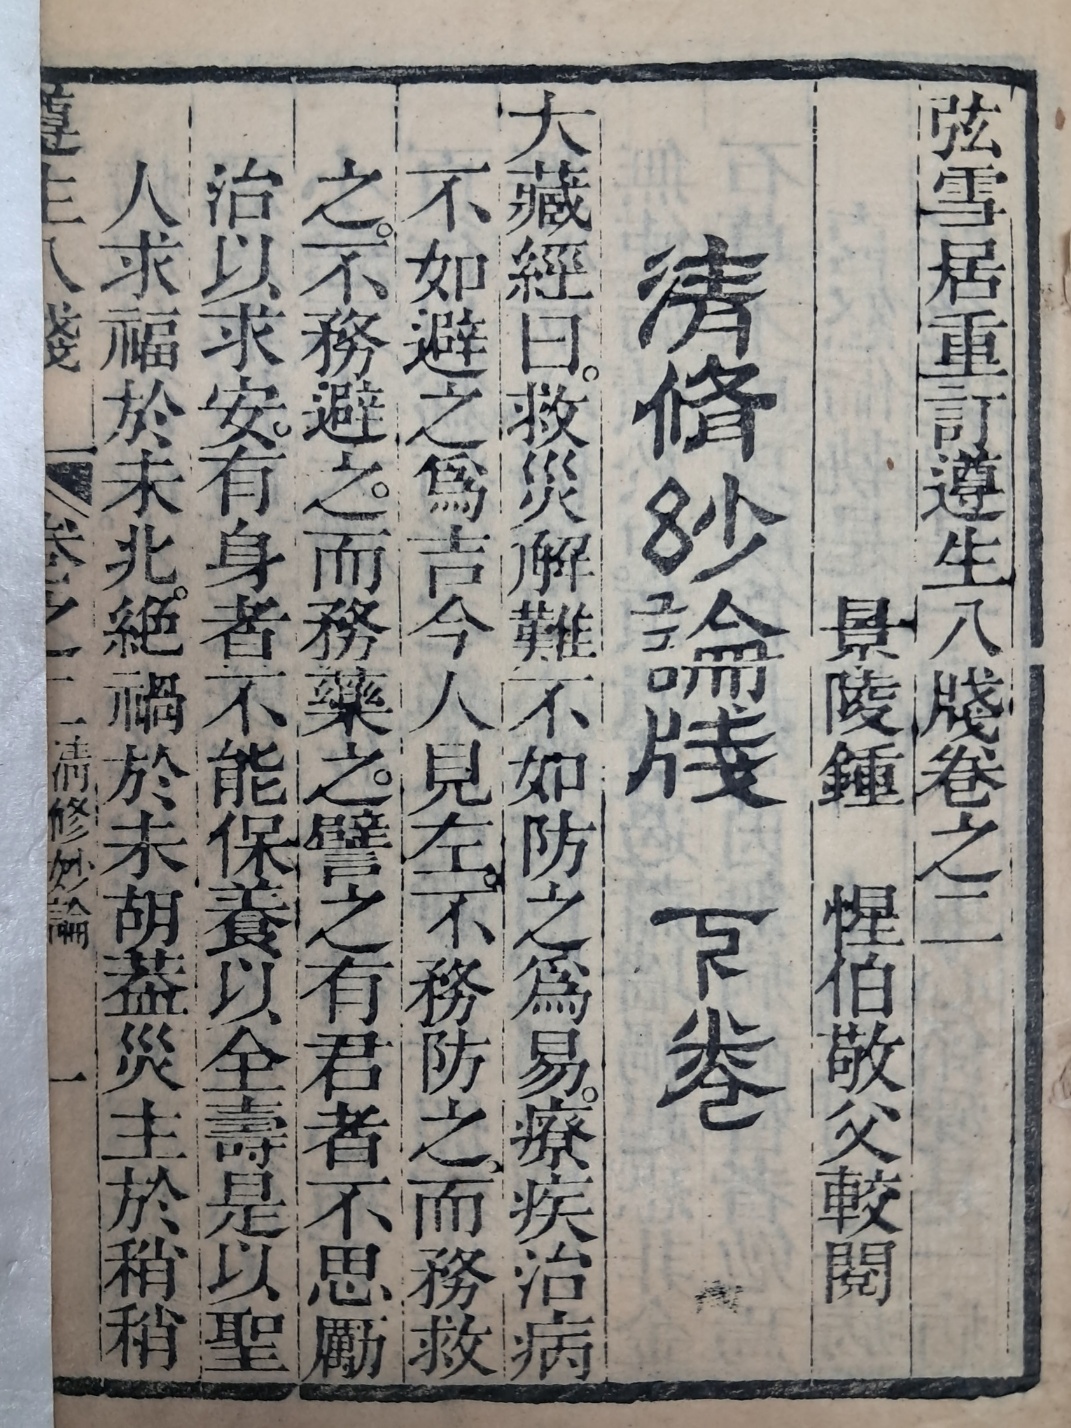 弦雪居重訂遵生八牋卷之二
景陵鍾　惺伯敬父較閱
清脩玅論牋　下卷
大藏經曰。救災解難不如防之爲易。療疾治病
不如避之爲吉今人見左。不務防之、而務救
之。不務避之。而務藥之。譬之有君者不思勵
治以求安。有身者不能保養以全壽是以聖
人求福於未北。絕禍於未胡葢災主於稍稍
遵生八牋　卷之二　清修妙論　一